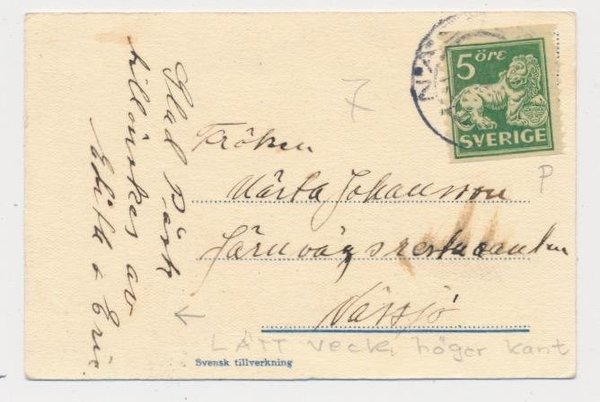 Glad Påsk
tillönskas av
Edith + Eric
7
N.A.
5 öre
SVERIGE
P
Fröken
Märta Johansson
Järnvägsrestauranten
Nässjö
LÄTT veck, höger kant
Svensk tillverkning